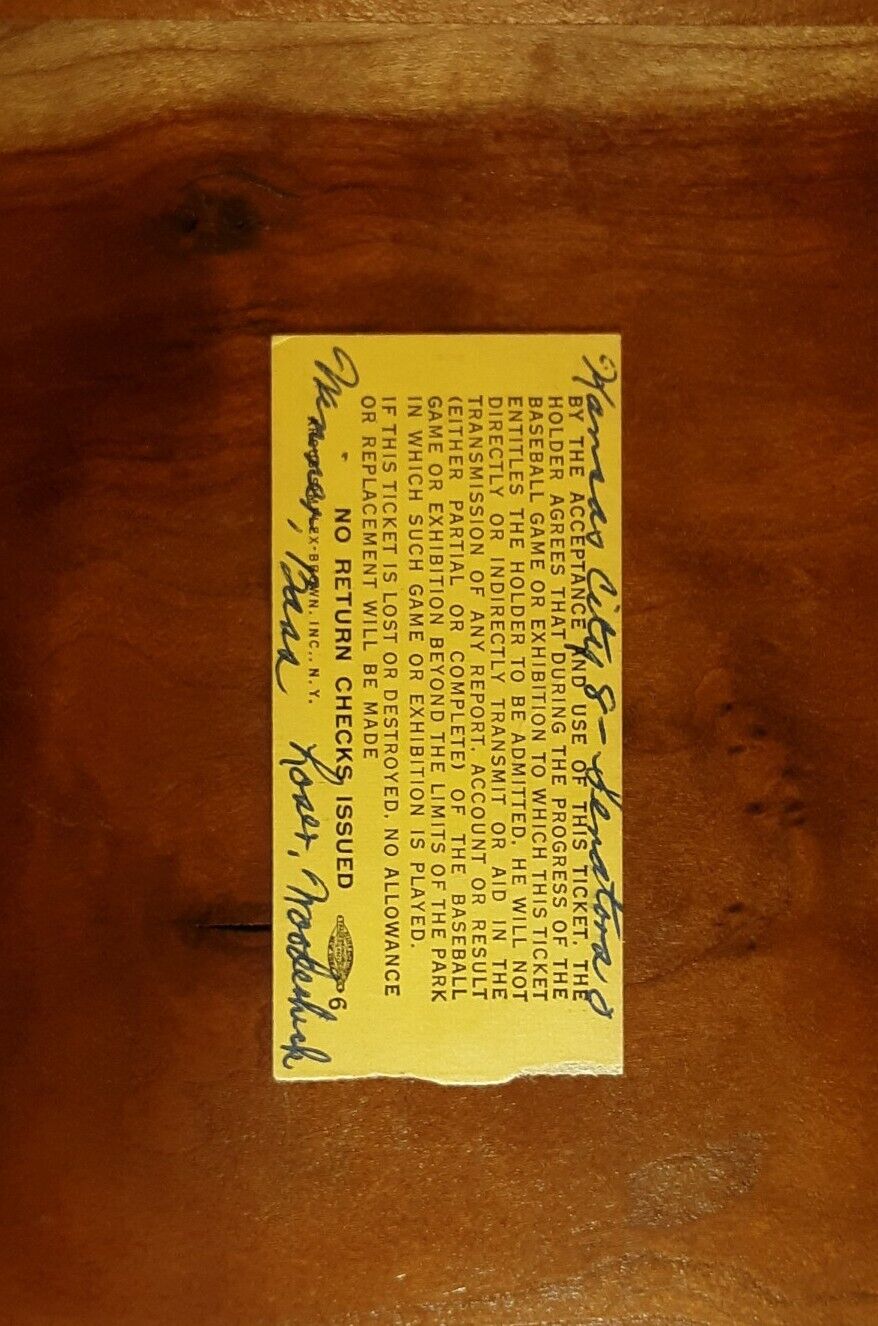 Kansas City 8 - Senators 0
BY THE ACCEPTANCE AND USE OF THIS TICKET, THE
HOLDER AGREES THAT DURING THE PROGRESS OF THE
BASEBALL GAME OR EXHIBITION TO WHICH THIS TICKET
ENTITLES THE HOLDER TO BE ADMITTED, HE WILL NOT
DIRECTLY OR INDIRECTLY TRANSMIT OR AID IN THE
TRANSMISSION OF ANY REPORT, ACCOUNT OR RESULT
(EITHER PARTIAL OR COMPLETE) OF THE BASEBALL
GAME OR EXHIBITION BEYOND THE LIMITS OF THE PARK
IN WHICH SUCH GAME OR EXHIBITION IS PLAYED.
IF THIS TICKET IS LOST OR DESTROYED, NO ALLOWANCE
OR REPLACEMENT WILL BE MADE
NO RETURN CHECKS ISSUED 6
BROWN, INC., N.Y.
Winner, Bass Loser, Woodeshick